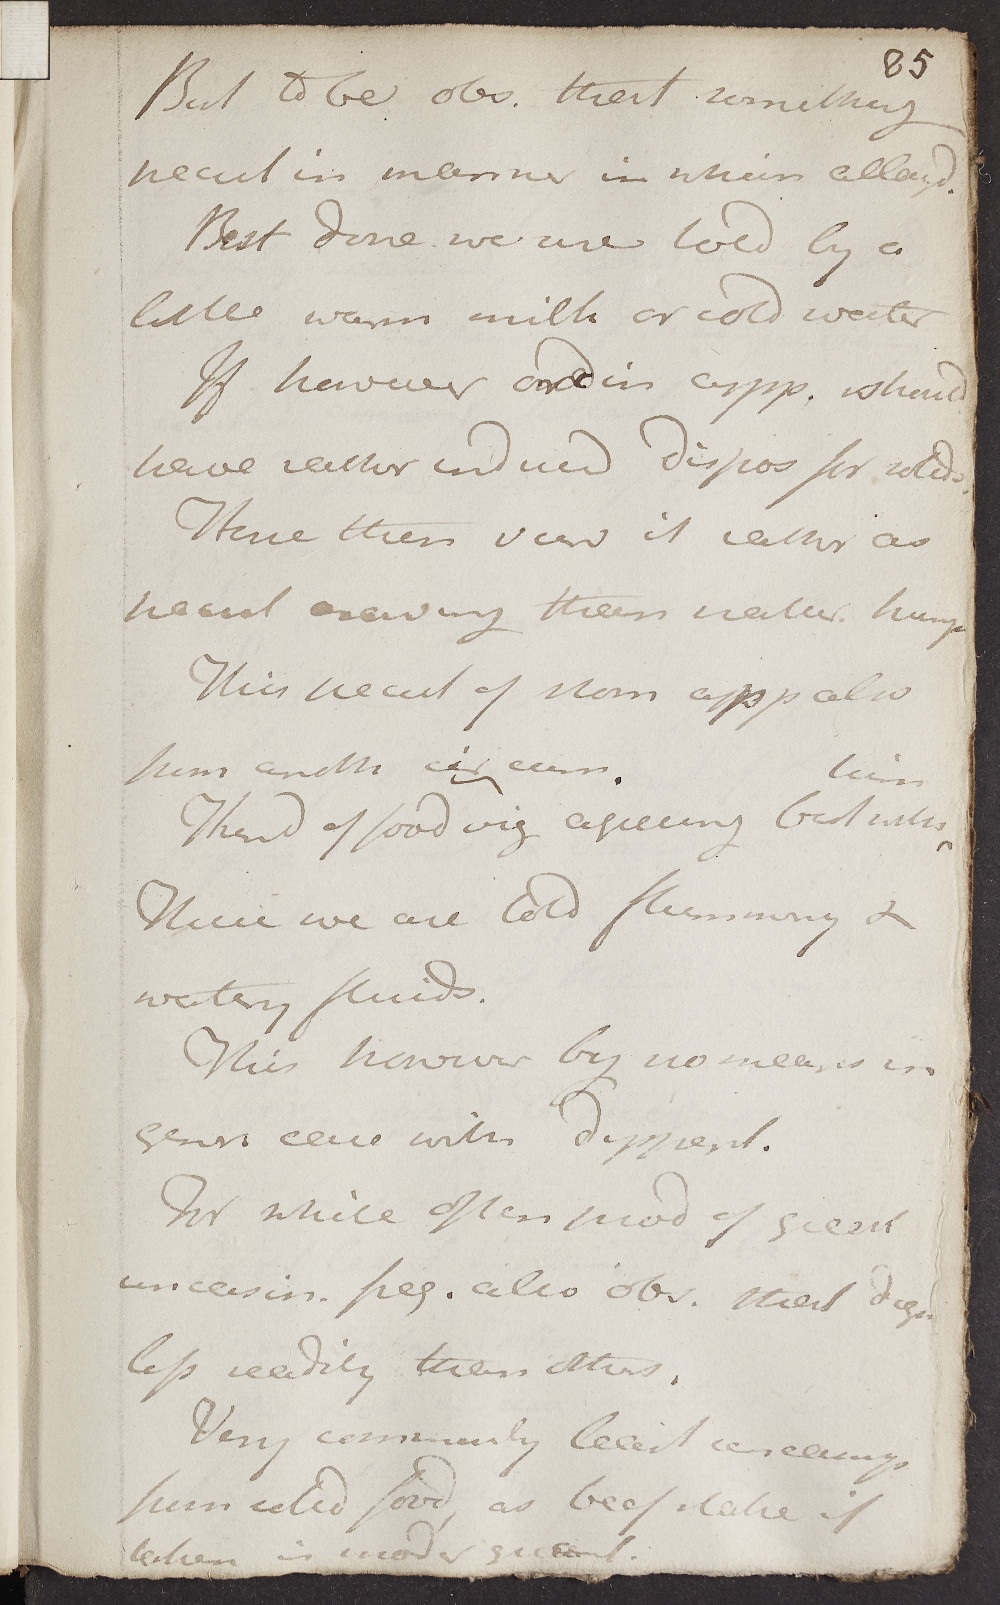 85
But to be obs. that something
peculi in manner in which allayd.
Best done we are told by a
little warm milk or cold water
If however ordin app. should
have rather induced dispos for solids.
Hence then view it rather as
pecul craving than natur. hung
This pecul of stom app also
from anoth circum.
kind of food viz agreeing best with
him
Thus we are told flummery &
watery fluids.
This however by no means in
gener case with dyspept.
For while often prod of great
uneasin. freq. also obs. that diges
less readily than others.
Very commonly least uneasiness
from solid food, as beef stake if
taken in moder quant.